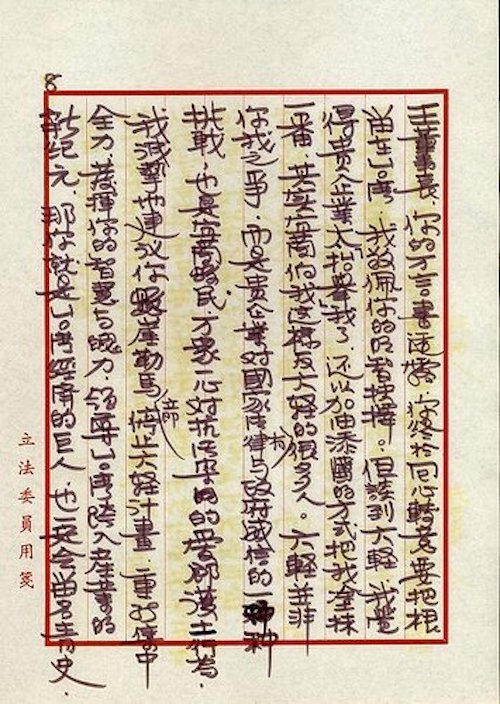 8
王董事長、你的万言書透露，你終於回心轉意要把根
留在台湾，我敬佩你的明智抉擇。但談到六輕，我覺
得贵企業太抬舉我了，还以加油添醋的方式把我全抹
一番，其实宜蘭像我这樣反六輕的很多人。六輕並非
你我之爭，而是贵企業对國家法律与政府威信的一种
挑戰，也是宜蘭縣民，万家一心对抗污染的愛鄉護土行为，
我誠摯地建议你懸崖勒馬，立即停止六輕計畫，重新集中
全力，發揮你的智慧与魄力，領導台湾跨入產業的
新纪元，那你就是台湾經濟的巨人，也一定会留名青史。
立法委員用箋